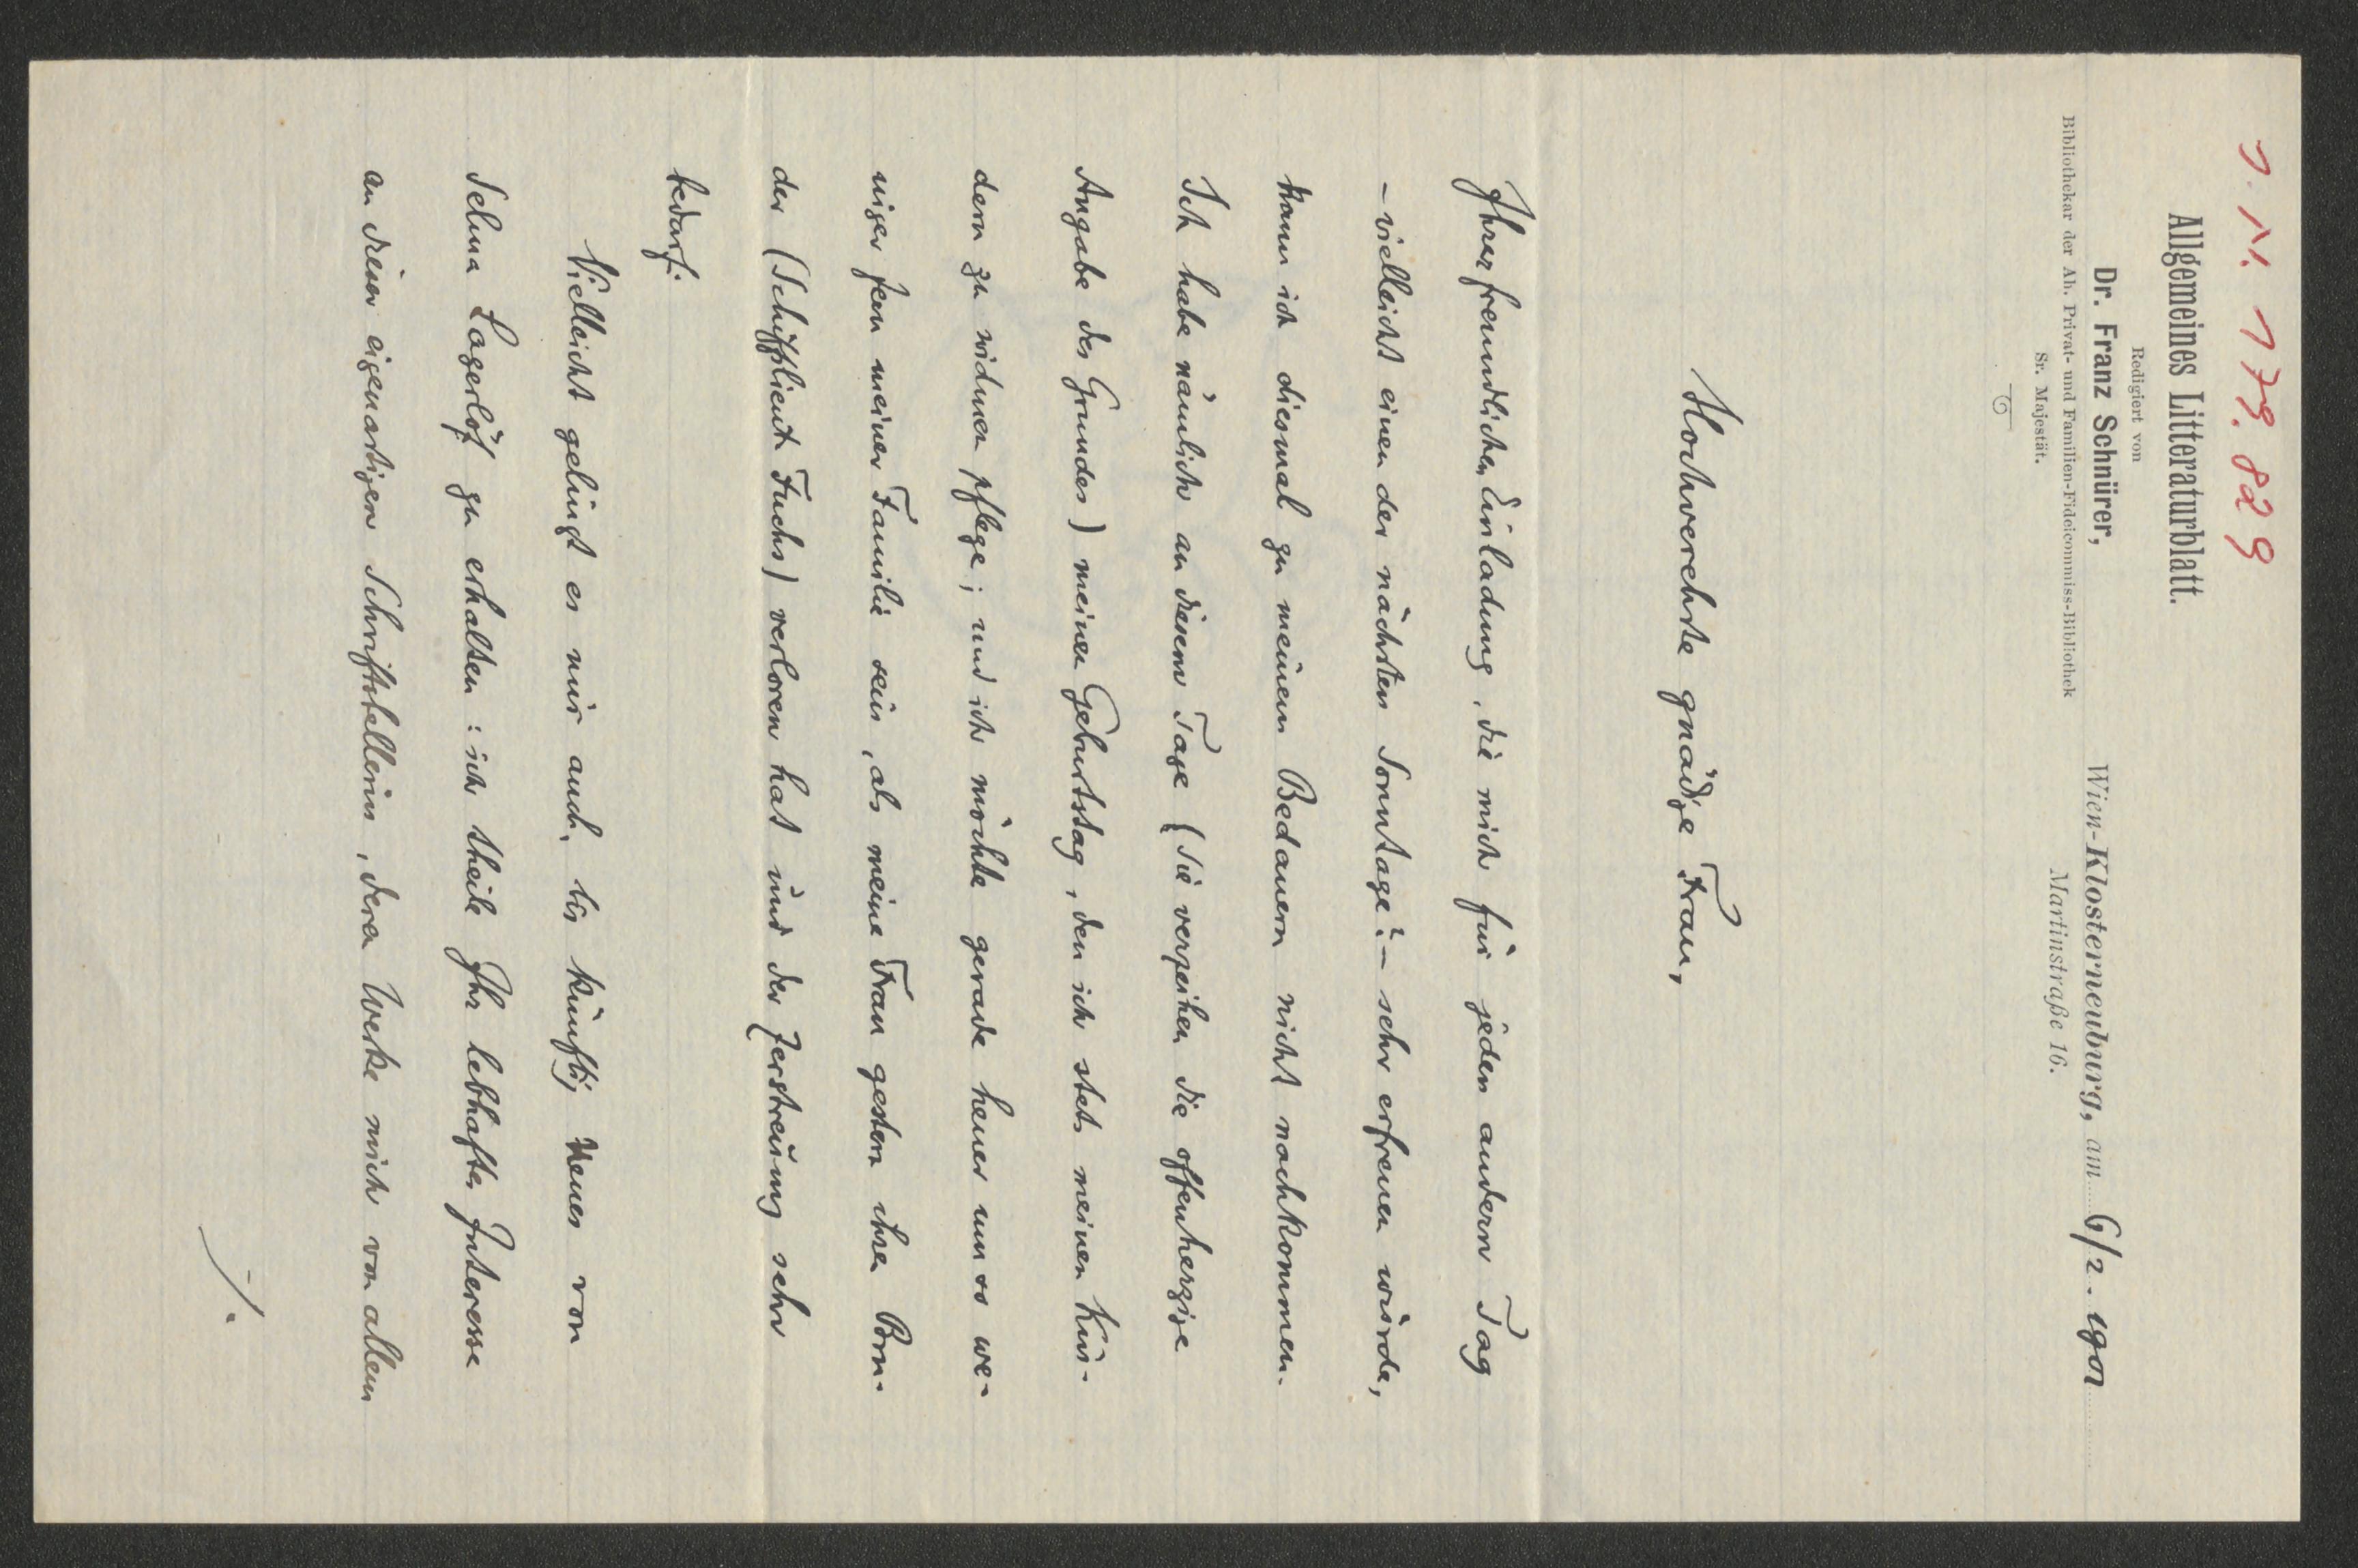 I. N. 179.829
Allgemeines Litteraturblatt.
Redigiert von
Dr. Franz Schnürer,
Bibliothekar der Ah. Privat- und Familien-Fideicommiss-Bibliothek
Sr. Majestät.
Wien-Klosterneuburg, am 6/2. 1901
Martinstraße 16.
Hochverehrte gnädige Frau,
Ihrer freundlichen Einladung, die mich für jeden andern Tag
– vielleicht einen der nächsten Sonntage? – sehr erfreuen würde,
kann ich diesmal zu meinem Bedauern nicht nachkommen.
Ich habe nämlich an diesem Tage (Sie verzeihen die offenherzige
Angabe des Grundes) meinen Geburtstag, den ich stets meinen Kin-
dern zu widmen pflege; und ich möchte gerade heuer um so we-
niger fern meiner Familie sein, als meine Frau gestern ihren Bru-
der (Schiffslieut Fuchs) verloren hat und der Zerstreuung sehr
bedarf.
Vielleicht gelingt es mir auch, bis künftig Neues von
Selma Lagerlöf zu erhalten: ich theile Ihr lebhaftes Interesse
an dieser eigenartigen Schriftstellerin, deren Werke mich von allem
./.